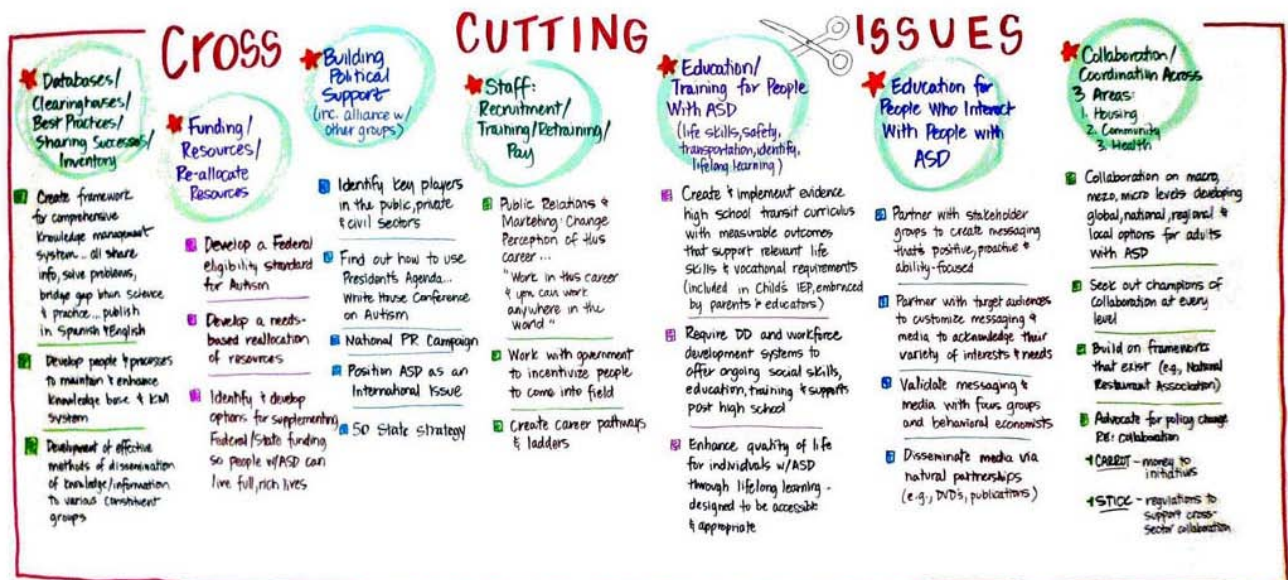 CROSS CUTTING ISSUES
Databases/
Clearinghouses/
Best Practices/
Sharing Successes/
Inventory
Create framework
for comprehensive
knowledge management
system... all share
info, solve problems,
bridge gap btwn science
& practice... publish
in Spanish & English
Develop people & processes
to maintain & enhance
knowledge base & KM
system
Development of effective
methods of dissemination
of knowledge/information
to various constituent
groups
Funding/
Resources/
Re-allocate
Resources
Develop a Federal
eligibility standard
for Autism
Develop a needs-
based reallocation
of resources
Identify & develop
options for supplementing
Federal/State funding
so people w/ASD can
live full, rich lives
Building
Political
Support
(inc. alliance w/
other groups)
Identify key players
in the public, private
& civil sectors
Find out how to use
President's Agenda...
White House Conference
on Autism
National PR Campaign
Position ASD as an
International Issue
50 State Strategy
Staff:
Recruitment/
Training/Retraining/
Pay
Public Relations &
Marketing: Change
Perception of this
career...
"Work in this career
& you can work
anywhere in the
world"
Work with government
to incentivize people
to come into field
Create career pathways
& ladders
Education/
Training for People
With ASD
(life skills, safety,
transportation, identify,
lifelong learning)
Create & implement evidence
high school transit curriculus
with measurable outcomes
that support relevant life
skills & vocational requirements
(included in Child's IEP, embraced
by parents & educators)
Require DD and workforce
development systems to
offer ongoing social skills,
education, training & supports
post high school
Enhance quality of life
for individuals w/ASD
through lifelong learning -
designed to be accessible
& appropriate
Education for
People Who Interact
With People with
ASD
Partner with stakeholder
groups to create messaging
that's positive, proactive &
ability-focused
Partner with target audiences
to customize messaging &
media to acknowledge their
variety of interests & needs
Validate messaging &
media with focus groups
and behavioral economists
Disseminate media via
natural partnerships
(e.g., DVD's, publications)
Collaboration/
Coordination Across
3 Areas:
1. Housing
2. Community
3. Health
Collaboration on macro,
mezo, micro levels developing
global, national, regional &
local options for adults
with ASD
Seek out champions of
collaboration at every
level
Build on frameworks
that exist (e.g., National
Restaurant Association)
Advocate for policy change
RE: collaboration
CARROT - money to
initiatives
STICK - regulations to
support cross-
sector collaboration